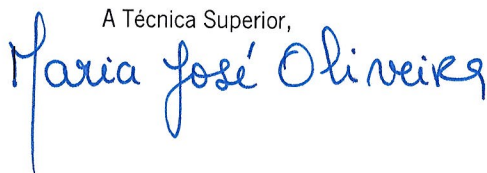 A Técnica Superior,
Maria José Oliveira